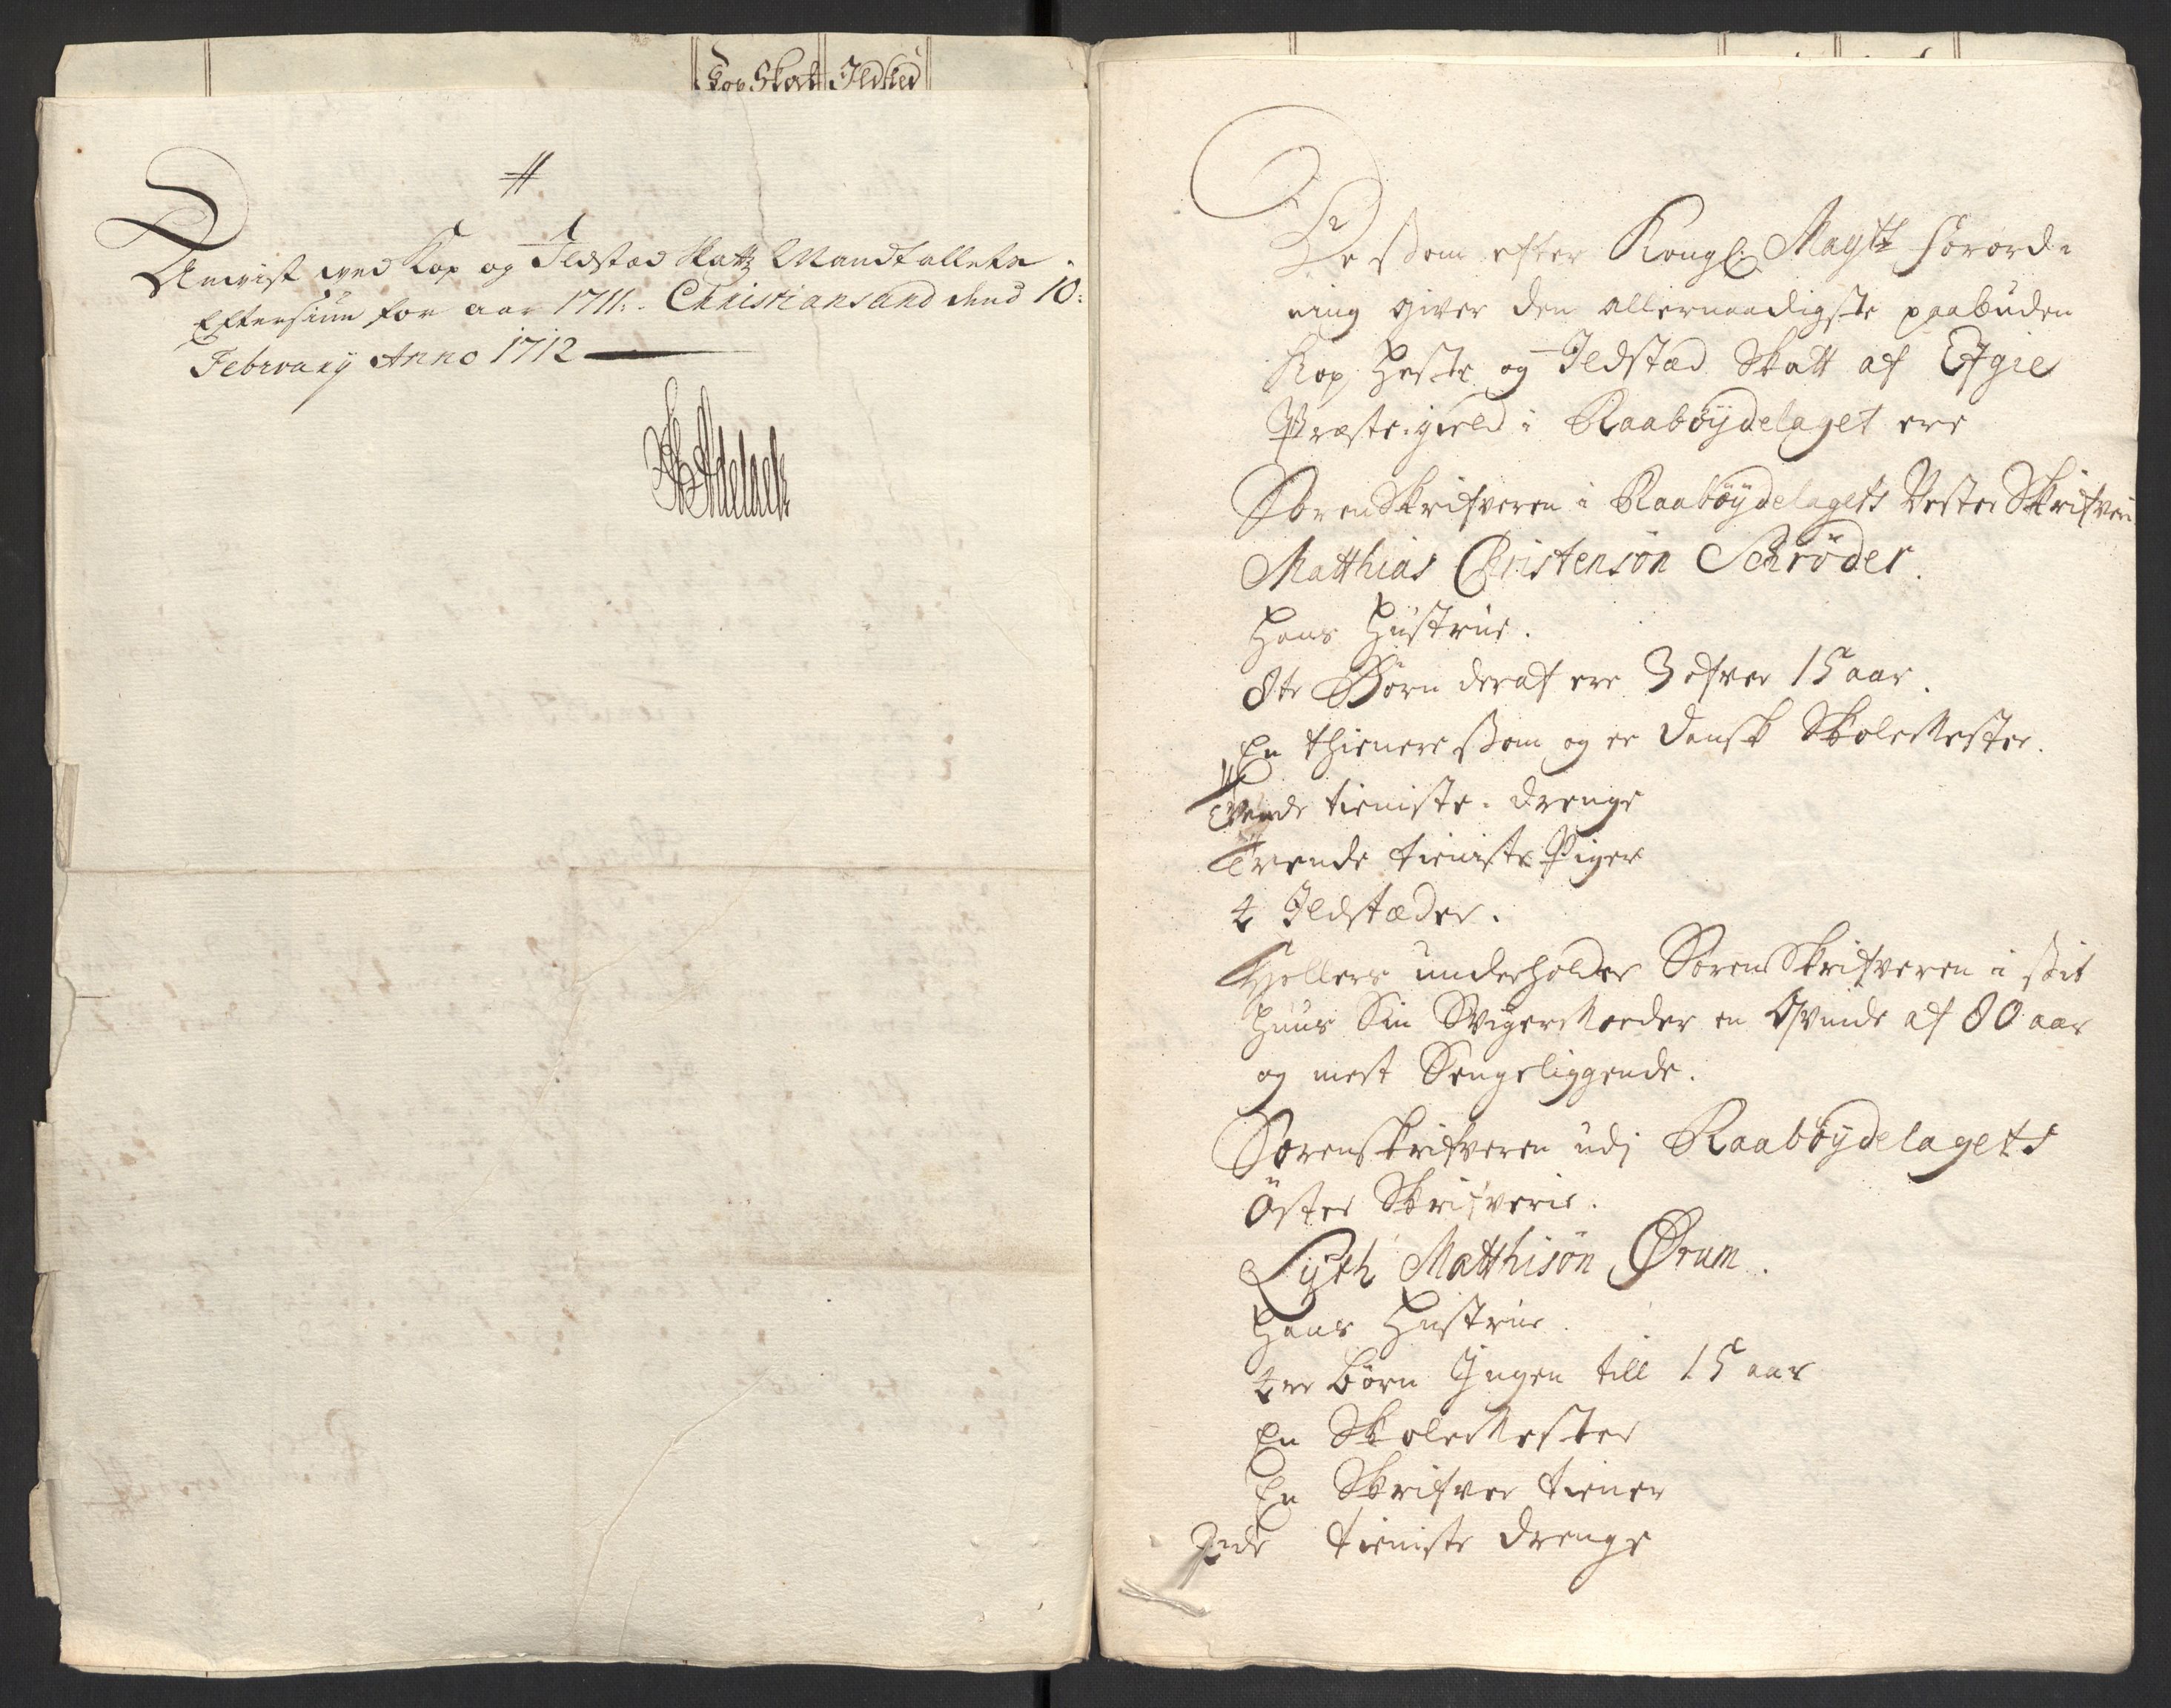 Kop Skat Ildsted
#
Anvist ved Kop og Ildstæd Skattz Mandtallets
Eftersiun for aar 1711: Christiansand dend 10:
February Anno 1712
De ssom efter Kongl: Maytt: Forord-
ning giver den allernaadigste paabuden
Kop, Heste og Ildstæd Skatt af Efgie
Præste-gield i Raabøydelaget ere
SorenSkrifveren i Raabøydelagets Vester Skrifverie
Matthias Christensøn Schrøder.
Hans Hustrue.
8te Børn deraf ere 3 ofver 15 aar.
En thienere ssom og er Dansk SkoleMester.
tieniste-drenge
Trende tieniste Piger
4 Ildstæder.
Hellers underholder SorenSkrifveren i ssit
Huus Sin SvigerModer en Qvinde af 80 aar
og mest Sengeliggende.
Sorenskrifveren udj Raabøydelagets
Øster Skrifverie.
Lyth Matthisøn Ørum.
Hans Hustrue.
4re børn Ingen till 15 aar
En SkoleMester
En Skrifver tiener
2nde tieniste drenge